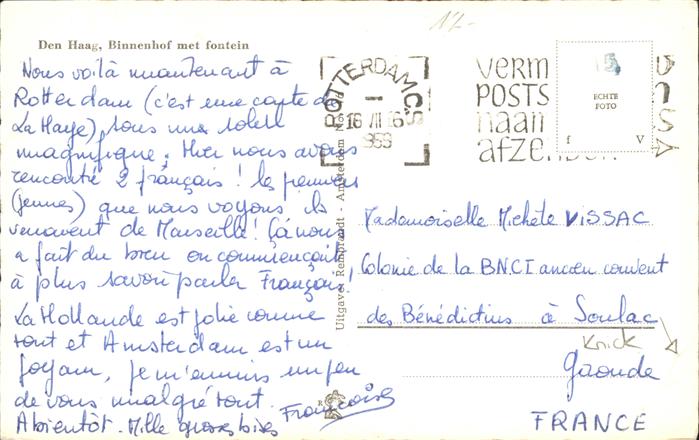 17.-
Den Haag, Binnenhof met fontein
Nous voilà maintenant à
Rotterdam (c'est une carte de
La Haye), sous un soleil
magnifique. Hier nous avons
rencontré 2 français! les premiers
(jeunes) que nous voyons ils
venaient de Marseille! Çà nous
a fait du bien on commençait
à plus savoir parler Français.
La Hollande est jolie comme
tout et Amsterdam est un
joyau, je m'ennuis un peu
de vous malgré tout.
A bientôt. Mille grosses bises
Françoise
Uitgave Rembrandt - Amsterdam Noord
ROTTERDAM C.S.
16 VII 16
1963
VERM
POSTS
naam
afzender
ECHTE
FOTO
f V
Mademoiselle Michèle VISSAC
Colonie de la B.N.C.I ancien couvent
des Bénédictins à Soulac
Knick
Gironde
FRANCE